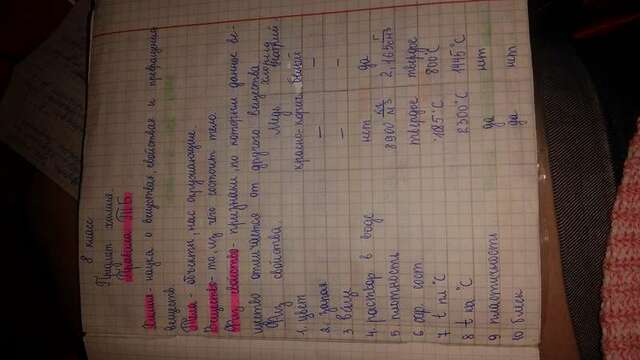 8 класс
Предмет химия.
Правила ТБ
Химия - наука о веществах, свойствах и превращении
веществ.
Тела - объекты, нас окружающие.
Вещество - то, из чего состоит тело.
Физ. свойство - признаки, по которым данное ве-
щество отличается от другого вещества
Физ свойства. Медь. хлорид натрий.
1. цвет красно-корич. белый
2. запах — —
3 вкус — —
4. раствор в воде нет да
5 плотность 8900 кг/м3 2,165 г/см3
6 агр. сост. твердое твердое
7 t пл °C 1085°C 800°C
8 t кп °C 2300°C 1445°C
9 пластичность да нет
10 блеск да нет